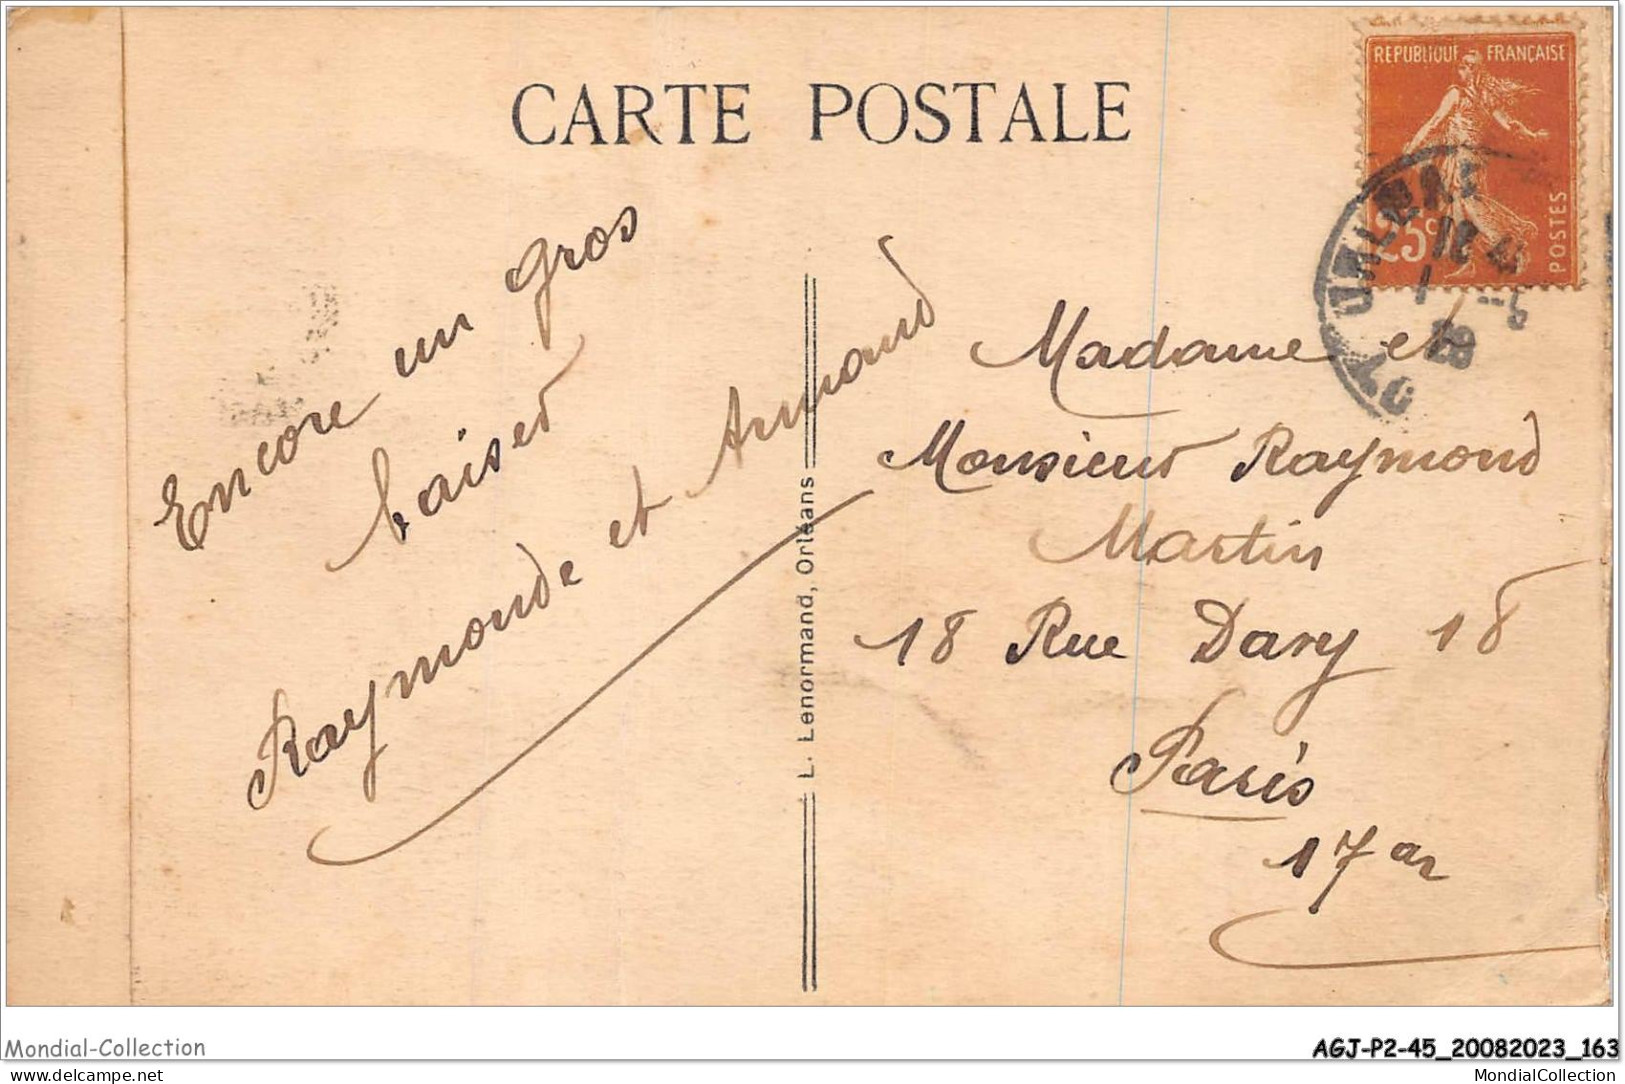 CARTE POSTALE
REPUBLIQUE FRANÇAISE
25c
POSTES
18
1 -5
28
Encore un gros
baiser
Raymonde et Armand
L. Lenormand, Orléans
Madame et
Monsieur Raymond
Martin
18 Rue Davy 18
Paris
17 ar
Mondial-Collection
AGJ-P2-45_20082023_163
delcampe.net
MondialCollection